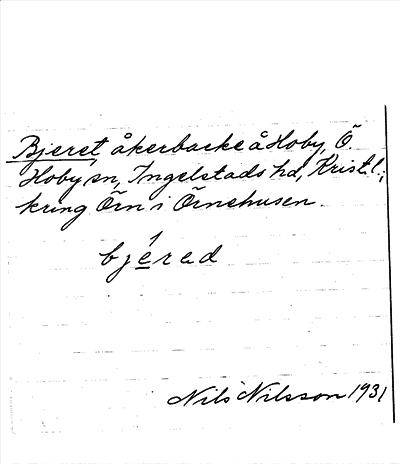 Bjeret, åkerbacke å Hoby, Ö.
Hoby sn, Ingelstads hd, Krist.l.;
kring Örn i Örnehusen.
bjérad
Nils Nilsson 1931